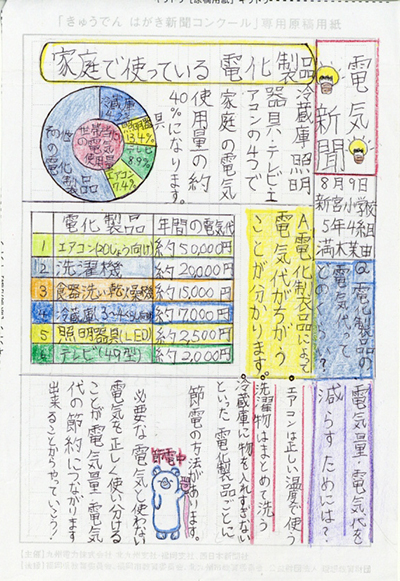 「きゅうでん はがき新聞コンクール」専用原稿用紙
電気新聞
8月9日
新宮小学校
5年4組
家庭で使っている電化製品
冷蔵庫・照明
器具・テレビ・エ
アコンの4つで
家庭の電気
使用量の約
40%になります。
世帯当たりの電気使用量
冷蔵庫
照明器具
13.4%
テレビ
8.9%
エアコン
7.4%
その他の電化製品
Q.電化製品の
電気代って
どのくらい?
A.電化製品によって
電気代がちがう
ことが分かります。
電化製品
年間の電気代
1 エアコン(20じょう向け) 約50,000円
2 洗濯機 約20,000円
3 食器洗い乾燥機 約15,000円
4 冷蔵庫(3〜4人家族向け) 約7,000円
5 照明器具(LED) 約2,500円
6 テレビ(49型) 約2,000円
電気量・電気代を
減らすためには?
・エアコンは正しい温度で使う
・洗濯物はまとめて洗う
・冷蔵庫に物を入れすぎない
といった電化製品ごとに
節電の方法があります。
節電中
必要な電気と使わない
電気を正しく使い分ける
ことが電気量・電気
代の節約につながります
出来ることからやっていこう!